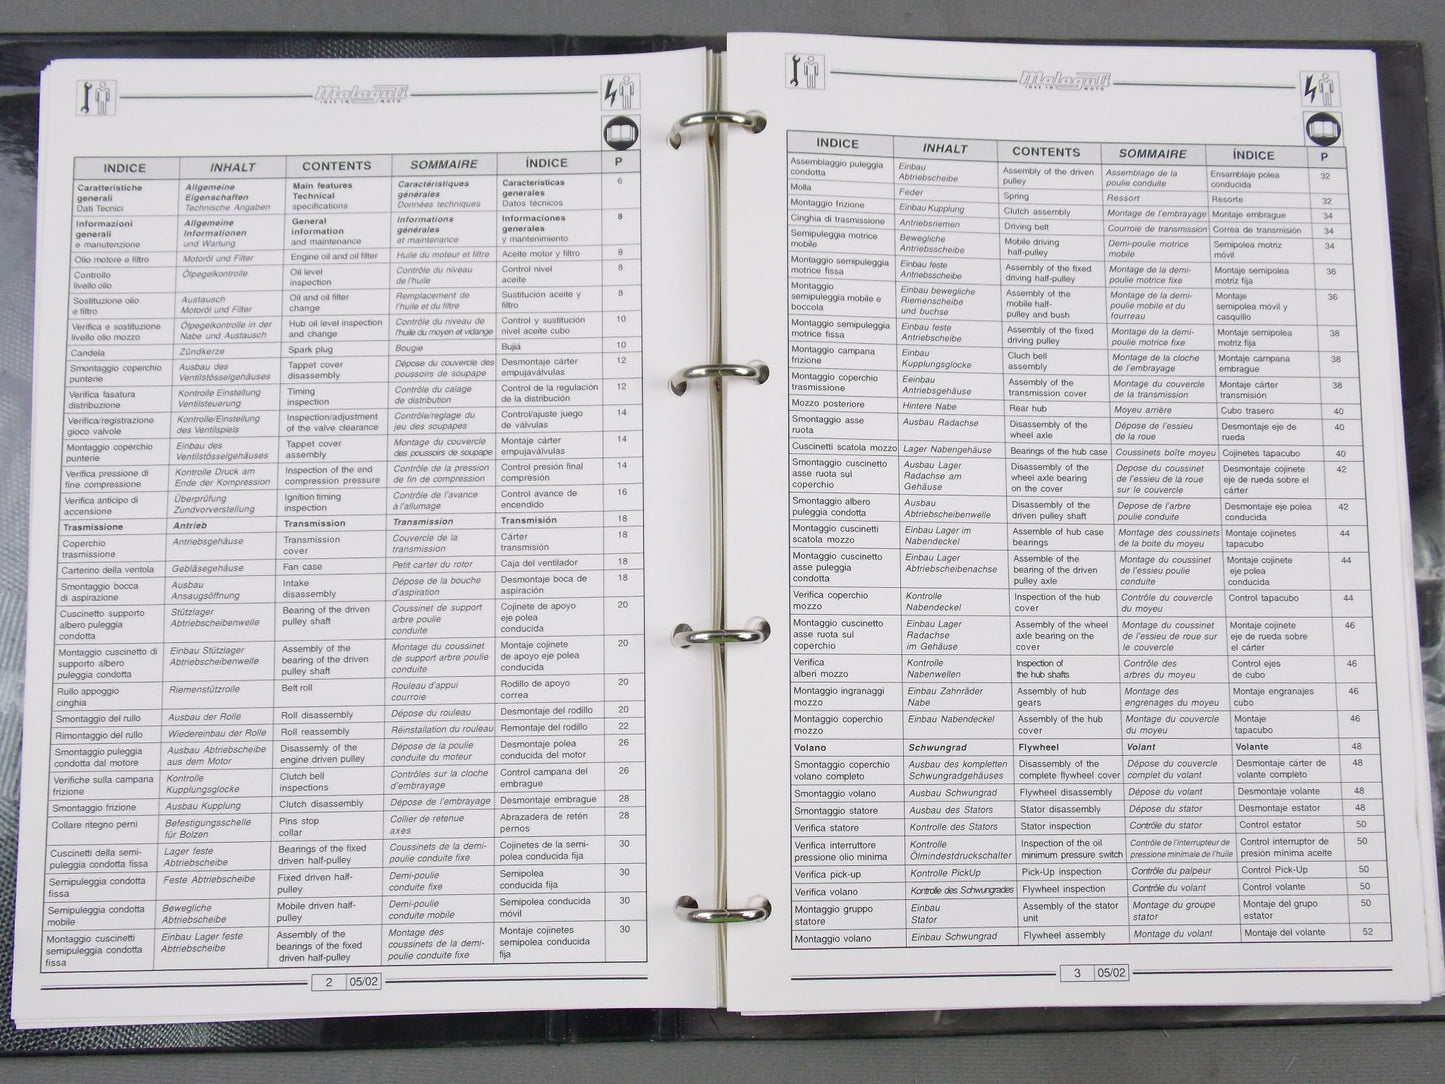 Malaguti
IDEE IN MOTO
INDICE INHALT CONTENTS SOMMAIRE ÍNDICE P
Caratteristiche generali Dati Tecnici | Allgemeine Eigenschaften Technische Angaben | Main features Technical specifications | Caractéristiques générales Données techniques | Características generales Datos técnicos | 6
Informazioni generali e manutenzione | Allgemeine Informationen und Wartung | General information and maintenance | Informations générales et maintenance | Informaciones generales y mantenimiento | 8
Olio motore e filtro | Motoröl und Filter | Engine oil and oil filter | Huile du moteur et filtre | Aceite motor y filtro | 8
Controllo livello olio | Ölpegelkontrolle | Oil level inspection | Contrôle du niveau de l'huile | Control nivel aceite | 8
Sostituzione olio e filtro | Austausch Motoröl und Filter | Oil and oil filter change | Remplacement de l'huile et du filtre | Sustitución aceite y filtro | 8
Verifica e sostituzione livello olio mozzo | Ölpegelkontrolle in der Nabe und Austausch | Hub oil level inspection and change | Contrôle du niveau de l'huile du moyen et vidange | Control y sustitución nivel aceite cubo | 10
Candela | Zündkerze | Spark plug | Bougie | Bujía | 10
Smontaggio coperchio punterie | Ausbau des Ventilstösselgehäuses | Tappet cover disassembly | Dépose du couvercle des poussoirs de soupape | Desmontaje cárter empujaválvulas | 12
Verifica fasatura distribuzione | Kontrolle Einstellung Ventilsteuerung | Timing inspection | Contrôle du calage de distribution | Control de la regulación de la distribución | 12
Verifica/registrazione gioco valvole | Kontrolle/Einstellung des Ventilspiels | Inspection/adjustment of the valve clearance | Contrôle/reglage du jeu des soupapes | Control/ajuste juego de válvulas | 14
Montaggio coperchio punterie | Einbau des Ventilstösselgehäuses | Tappet cover assembly | Montage du couvercle des poussoirs de soupape | Montaje cárter empujaválvulas | 14
Verifica pressione di fine compressione | Kontrolle Druck am Ende der Kompression | Inspection of the end compression pressure | Contrôle de la pression de fin de compression | Control presión final compresión | 14
Verifica anticipo di accensione | Überprüfung Zundvorverstellung | Ignition timing inspection | Contrôle de l'avance à l'allumage | Control avance de encendido | 16
Trasmissione | Antrieb | Transmission | Transmission | Transmisión | 18
Coperchio trasmissione | Antriebsgehäuse | Transmission cover | Couvercle de la transmission | Cárter transmisión | 18
Carterino della ventola | Gebläsegehäuse | Fan case | Petit carter du rotor | Caja del ventilador | 18
Smontaggio bocca di aspirazione | Ausbau Ansaugsöffnung | Intake disassembly | Dépose de la bouche d'aspiration | Desmontaje boca de aspiración | 18
Cuscinetto supporto albero puleggia condotta | Stützlager Abtriebscheibenwelle | Bearing of the driven pulley shaft | Coussinet de support arbre poulie conduite | Cojinete de apoyo eje polea conducida | 20
Montaggio cuscinetto di supporto albero puleggia condotta | Einbau Stützlager Abtriebscheibenwelle | Assembly of the bearing of the driven pulley shaft | Montage du coussinet de support arbre poulie conduite | Montaje cojinete de apoyo eje polea conducida | 20
Rullo appoggio cinghia | Riemenstützrolle | Belt roll | Rouleau d'appui courroie | Rodillo de apoyo correa | 20
Smontaggio del rullo | Ausbau der Rolle | Roll disassembly | Dépose du rouleau | Desmontaje del rodillo | 20
Rimontaggio del rullo | Wiedereinbau der Rolle | Roll reassembly | Réinstallation du rouleau | Remontaje del rodillo | 22
Smontaggio puleggia condotta dal motore | Ausbau Abtriebscheibe aus dem Motor | Disassemly of the engine driven pulley | Dépose de la poulie conduite du moteur | Desmontaje polea conducida del motor | 26
Verifiche sulla campana frizione | Kontrolle Kupplungsglocke | Clutch bell inspections | Contrôles sur la cloche d'embrayage | Control campana del embrague | 26
Smontaggio frizione | Ausbau Kupplung | Clutch disassembly | Dépose de l'embrayage | Desmontaje embrague | 28
Collare ritegno perni | Befestigungsschelle für Bolzen | Pins stop collar | Collier de retenue axes | Abrazadera de retén pernos | 28
Cuscinetti della semipuleggia condotta fissa | Lager feste Abtriebscheibe | Bearings of the fixed driven half-pulley | Coussinets de la demi-poulie conduite fixe | Cojinetes de la semipolea conducida fija | 30
Semipuleggia condotta fissa | Feste Abtriebscheibe | Fixed driven half-pulley | Demi-poulie conduite fixe | Semipolea conducida fija | 30
Semipuleggia condotta mobile | Bewegliche Abtriebscheibe | Mobile driven half-pulley | Demi-poulie conduite mobile | Semipolea conducida móvil | 30
Montaggio cuscinetti semipuleggia condotta fissa | Einbau Lager feste Abtriebscheibe | Assembly of the bearings of the fixed driven half-pulley | Montage des coussinets de la demi-poulie conduite fixe | Montaje cojinetes semipolea conducida fija | 30
2 05/02
Malaguti
IDEE IN MOTO
INDICE INHALT CONTENTS SOMMAIRE ÍNDICE P
Assemblaggio puleggia condotta | Einbau Abtriebscheibe | Assembly of the driven pulley | Assemblage de la poulie conduite | Ensamblaje polea conducida | 32
Molla | Feder | Spring | Ressort | Resorte | 32
Montaggio frizione | Einbau Kupplung | Clutch assembly | Montage de l'embrayage | Montaje embrague | 34
Cinghia di trasmissione | Antriebsriemen | Driving belt | Courroie de transmission | Correa de transmisión | 34
Semipuleggia motrice mobile | Bewegliche Antriebsscheibe | Mobile driving half-pulley | Demi-poulie motrice mobile | Semipolea motriz móvil | 34
Montaggio semipuleggia motrice fissa | Einbau feste Antriebsscheibe | Assembly of the fixed driving half-pulley | Montage de la demi-poulie motrice fixe | Montaje semipolea motriz fija | 36
Montaggio semipuleggia mobile e boccola | Einbau bewegliche Riemenscheibe und buchse | Assembly of the mobile half-pulley and bush | Montage de la demi-poulie mobile et du fourreau | Montaje semipolea móvil y casquillo | 36
Montaggio semipuleggia motrice fissa | Einbau feste Antriebscheibe | Assembly of the fixed driving pulley | Montage de la demi-poulie motrice fixe | Montaje semipolea motriz fija | 38
Montaggio campana frizione | Einbau Kupplungsglocke | Cluch bell assembly | Montage de la cloche de l'embrayage | Montaje campana embrague | 38
Montaggio coperchio trasmissione | Eeinbau Antriebsgehäuse | Assembly of the transmission cover | Montage du couvercle de la transmission | Montaje cárter transmisión | 38
Mozzo posteriore | Hintere Nabe | Rear hub | Moyeu arrière | Cubo trasero | 40
Smontaggio asse ruota | Ausbau Radachse | Disassembly of the wheel axle | Dépose de l'essieu de la roue | Desmontaje eje de rueda | 40
Cuscinetti scatola mozzo | Lager Nabengehäuse | Bearings of the hub case | Coussinets boîte moyeu | Cojinetes tapacubo | 40
Smontaggio cuscinetto asse ruota sul coperchio | Ausbau Lager Radachse am Gehäuse | Disassembly of the wheel axle bearing on the cover | Depose du coussinet de l'essieu de la roue sur le couvercle | Desmontaje cojinete eje de rueda sobre el cárter | 42
Smontaggio albero puleggia condotta | Ausbau Abtriebscheibenwelle | Disassembly of the driven pulley shaft | Depose de l'arbre poulie conduite | Desmontaje eje polea conducida | 42
Montaggio cuscinetti scatola mozzo | Einbau Lager im Nabendeckel | Assemble of hub case bearings | Montage des coussinets de la boite du moyeu | Montaje cojinetes tapacubo | 44
Montaggio cuscinetto asse puleggia condotta | Einbau Lager Abtriebscheibenachse | Assemble of the bearing of the driven pulley axle | Montage du coussinet de l'essieu poulie conduite | Montaje cojinete eje polea conducida | 44
Verifica coperchio mozzo | Kontrolle Nabendeckel | Inspection of the hub cover | Contrôle du couvercle du moyeu | Control tapacubo | 44
Montaggio cuscinetto asse ruota sul coperchio | Einbau Lager Radachse im Gehäuse | Assembly of the wheel axle bearing on the cover | Montage du coussinet de l'essieu de roue sur le couvercle | Montaje cojinete eje de rueda sobre el cárter | 46
Verifica alberi mozzo | Kontrolle Nabenwellen | Inspection of the hub shafts | Contrôle des arbres du moyeu | Control ejes de cubo | 46
Montaggio ingranaggi mozzo | Einbau Zahnräder Nabe | Assembly of hub gears | Montage des engrenages du moyeu | Montaje engranajes cubo | 46
Montaggio coperchio mozzo | Einbau Nabendeckel | Assembly of the hub cover | Montage du couvercle du moyeu | Montaje tapacubo | 46
Volano | Schwungrad | Flywheel | Volant | Volante | 48
Smontaggio coperchio volano completo | Ausbau des kompletten Schwungradgehäuses | Disassembly of the complete flywheel cover | Dépose du couvercle complet du volant | Desmontaje cárter de volante completo | 48
Smontaggio volano | Ausbau Schwungrad | Flywheel disassembly | Dépose du volant | Desmontaje volante | 48
Smontaggio statore | Ausbau des Stators | Stator disassembly | Dépose du stator | Desmontaje estator | 48
Verifica statore | Kontrolle des Stators | Stator inspection | Contrôle du stator | Control estator | 50
Verifica interruttore pressione olio minima | Kontrolle Ölmindestdruckschalter | Inspection of the oil minimum pressure switch | Contrôle de l'interrupteur de pressione minimale de l'huile | Control interruptor de presión mínima aceite | 50
Verifica pick-up | Kontrolle PickUp | Pick-Up inspection | Contrôle du palpeur | Control Pick-Up | 50
Verifica volano | Kontrolle des Schwungrades | Flywheel inspection | Contrôle du volant | Control volante | 50
Montaggio gruppo statore | Einbau Stator | Assembly of the stator unit | Montage du groupe stator | Montaje del grupo estator | 50
Montaggio volano | Einbau Schwungrad | Flywheel assembly | Montage du volant | Montaje del volante | 52
3 05/02